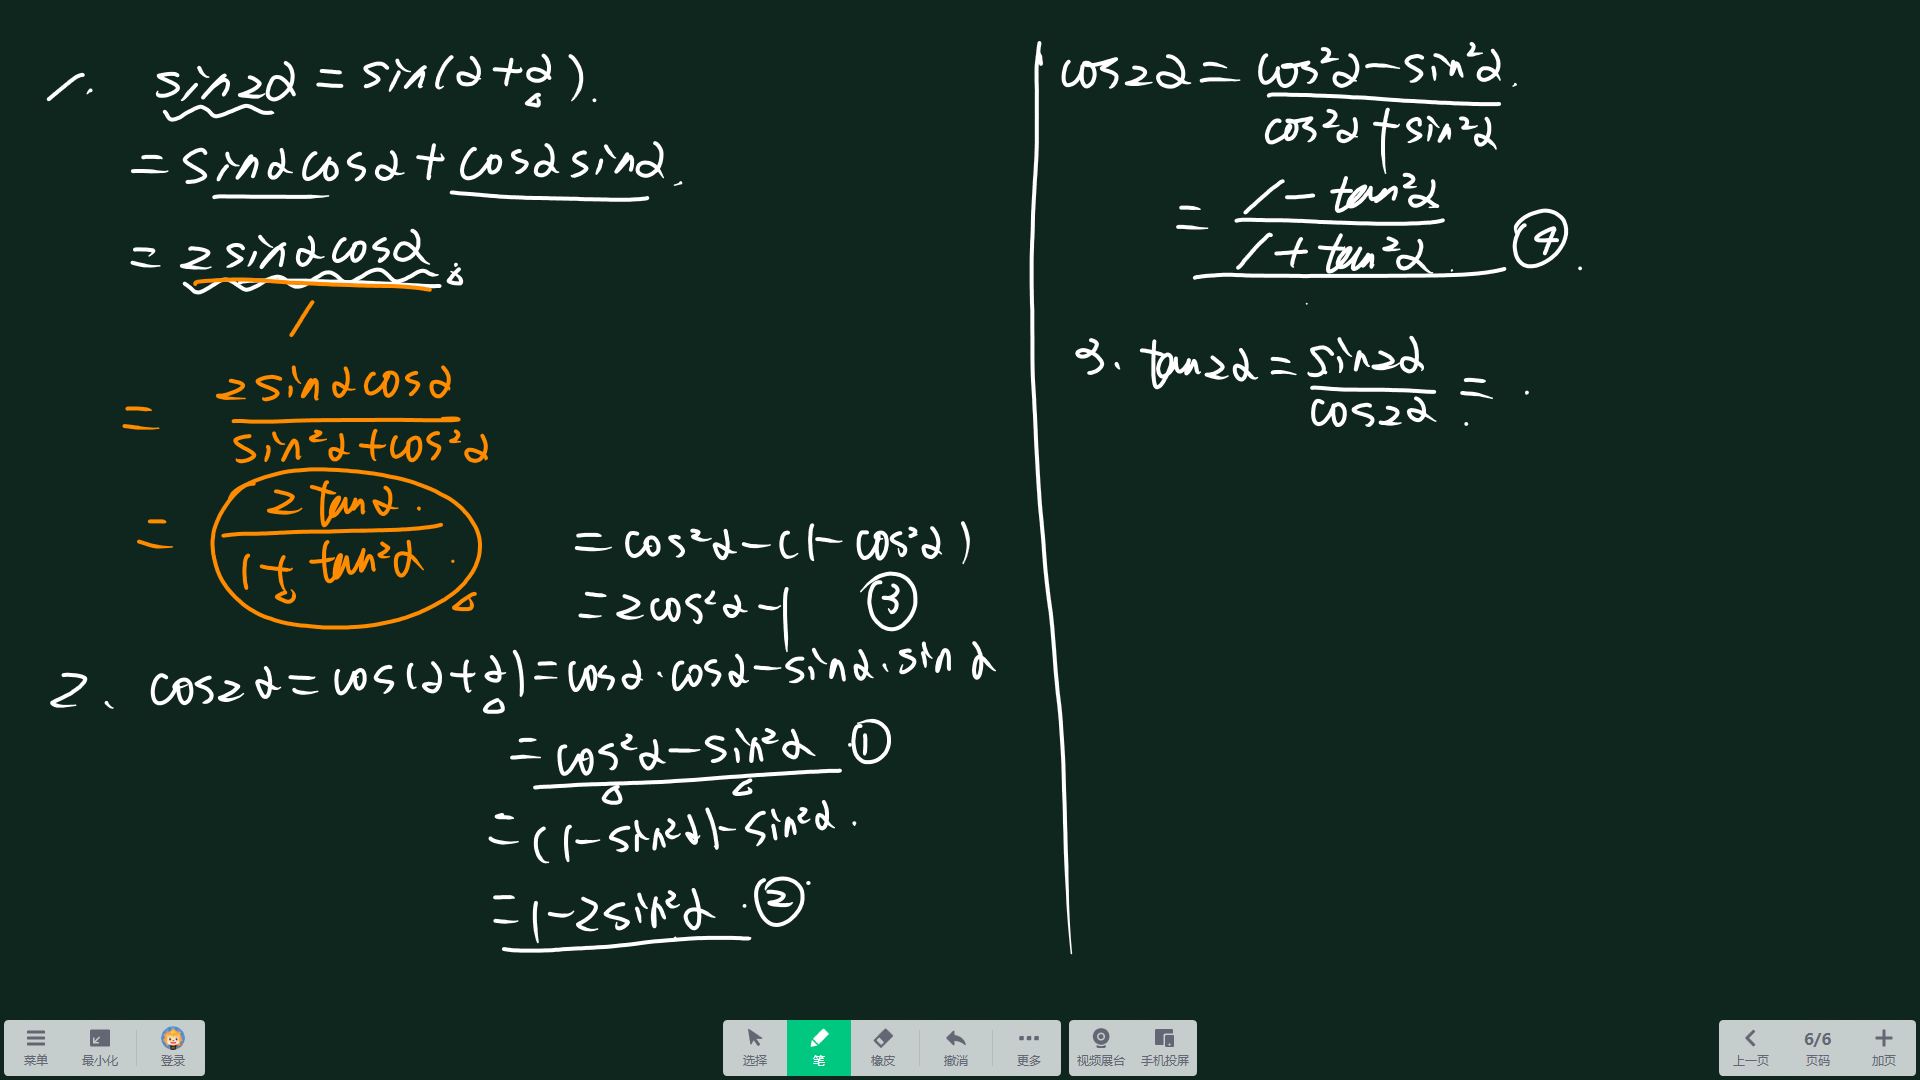 1. sin2α = sin(α+α).
= sinαcosα + cosαsinα.
= 2sinαcosα.
/
1
= 2sinαcosα / (sin²α+cos²α)
= 2tanα / (1+tan²α)
2、cos2α = cos(α+α) = cosα·cosα - sinα·sinα
= cos²α - sin²α ①
= (1-sin²α) - sin²α.
= 1-2sin²α ②
= cos²α - (1-cos²α)
= 2cos²α - 1 ③
cos2α = (cos²α - sin²α) / (cos²α + sin²α)
= (1 - tan²α) / (1 + tan²α) ④
3. tan2α = sin2α / cos2α =
菜单 最小化 登录
选择 笔 橡皮 撤消 更多
视频展台 手机投屏
上一页 6/6 页码 加页